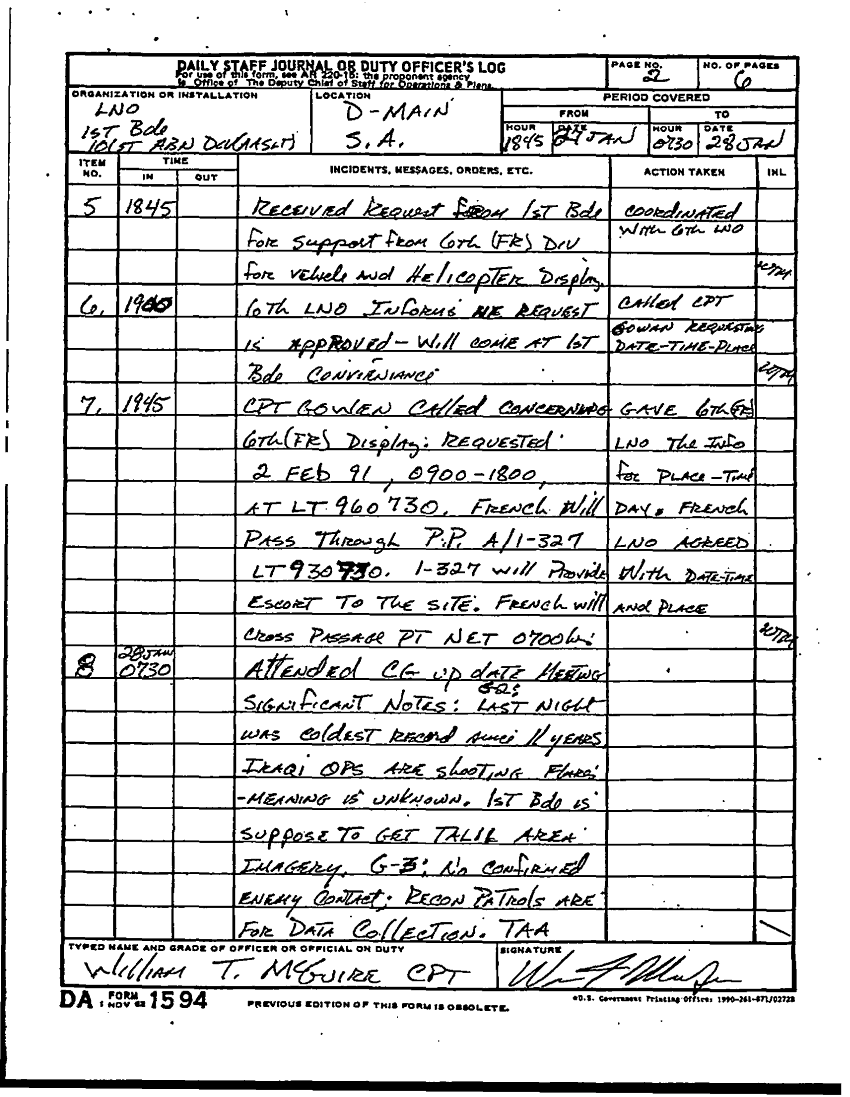 DAILY STAFF JOURNAL OR DUTY OFFICER'S LOG
For use of this form, see AR 220-15; the proponent agency
is Office of The Deputy Chief of Staff for Operations & Plans.
PAGE NO.
2
NO. OF PAGES
6
ORGANIZATION OR INSTALLATION
LNO
1ST Bde
101ST ABN Div(AASLT)
LOCATION
D-MAIN
S.A.
PERIOD COVERED
FROM
TO
HOUR
1845
DATE
27 JAN
HOUR
0730
DATE
28 JAN
ITEM NO.
TIME
IN
OUT
INCIDENTS, MESSAGES, ORDERS, ETC.
ACTION TAKEN
INL
5 1845 RECEIVED REQUEST FROM 1ST Bde COORDINATED
For Support from 6th (FR) Div With 6th LNO
for vehicle AND HELICOPTER Display. WTM
6. 1900 6th LNO INFORMS ME REQUEST CAlled CPT
is APPROVED - Will COME AT 1ST GOWAN REQUESTING
DATE-TIME-PLACE
Bde CONVIERNIANCE WTM
7. 1945 CPT GOWEN CAlled CONCERNING GAVE 6th(FR)
6th(FR) Display: REQUESTED LNO The INFO
2 FEB 91, 0900-1800, for PLACE-TIME
AT LT 960730. FRENCH Will DAY. FRENCH
PASS Through P.P. A/1-327 LNO AGREED
LT 930730. 1-327 will Provide With DATE-TIME
ESCORT TO THE SITE. FRENCH will AND PLACE
CROSS PASSAGE PT NET 0700hrs WTM
8 28 JAN 0730 ATTENDED CG up dATE MEETING
SIGNIFICANT NOTES: G2: LAST NIGHT
was coldest RECORD since 11 years
IRAQI OPS ARE shooting FLARES
-MEANING is UNKNOWN. 1ST Bde is
SUPPOSE TO GET TALIL AREA
IMAGERY. G-3: No CONFIRMED
ENEMY CONTACT; RECON PATROLS ARE
FOR DATA COLLECTION. TAA
TYPED NAME AND GRADE OF OFFICER OR OFFICIAL ON DUTY
WILLIAM T. MCGUIRE CPT
SIGNATURE
DA FORM 1 NOV 62 1594
PREVIOUS EDITION OF THIS FORM IS OBSOLETE.
*U.S. Government Printing Office: 1990-261-871/02728